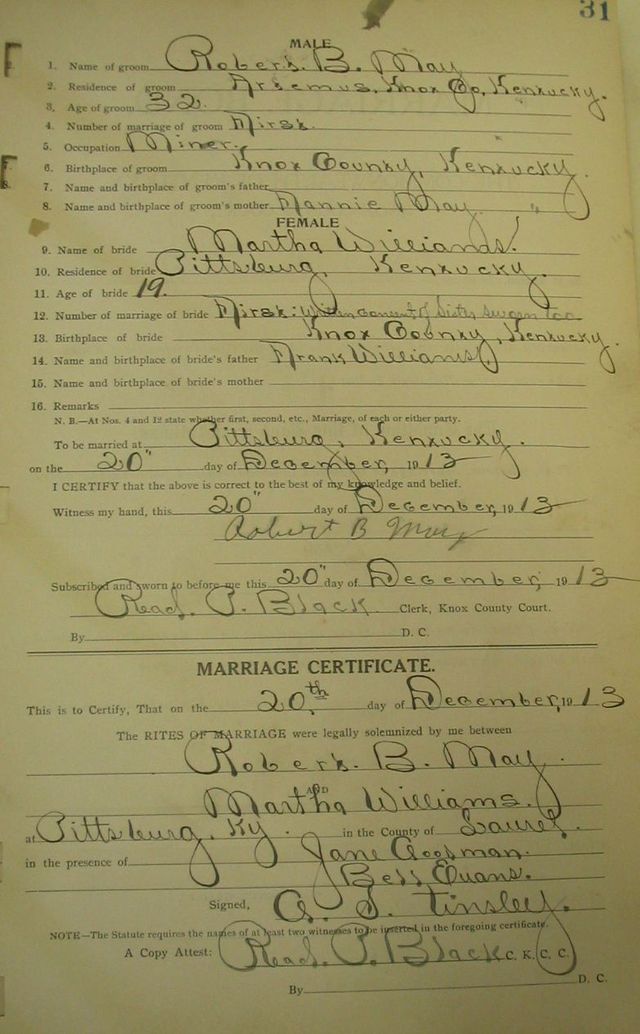 31
MALE
1. Name of groom Robert. B. May
2. Residence of groom Artemus, Knox Co, Kentucky.
3. Age of groom 32.
4. Number of marriage of groom First.
5. Occupation Miner.
6. Birthplace of groom Knox County, Kentucky.
7. Name and birthplace of groom's father
8. Name and birthplace of groom's mother Nannie May. "
FEMALE
9. Name of bride Martha Williams.
10. Residence of bride Pittsburg, Kentucky.
11. Age of bride 19.
12. Number of marriage of bride First: of Sister
13. Birthplace of bride Knox County, Kentucky.
14. Name and birthplace of bride's father Frank Williams
15. Name and birthplace of bride's mother
16. Remarks
N. B.—At Nos. 4 and 12 state whether first, second, etc., Marriage, of each or either party.
To be married at Pittsburg, Kentucky.
on the 20" day of December, 1913
I CERTIFY that the above is correct to the best of my knowledge and belief.
Witness my hand, this 20" day of December, 1913
Robert B May
Subscribed and sworn to before me this 20" day of December, 1913
Read. P. Black Clerk, Knox County Court.
By D. C.
MARRIAGE CERTIFICATE.
This is to Certify, That on the 20.th day of December, 1913
The RITES OF MARRIAGE were legally solemnized by me between
Robert. B. May.
AND
Martha Williams.
at Pittsburg, Ky. in the County of Laurel.
in the presence of Jane
Bess Evans.
Signed, Tinsley.
NOTE—The Statute requires the names of at least two witnesses to be inserted in the foregoing certificate.
A Copy Attest: Read. P. Black C. K. C. C.
By D. C.